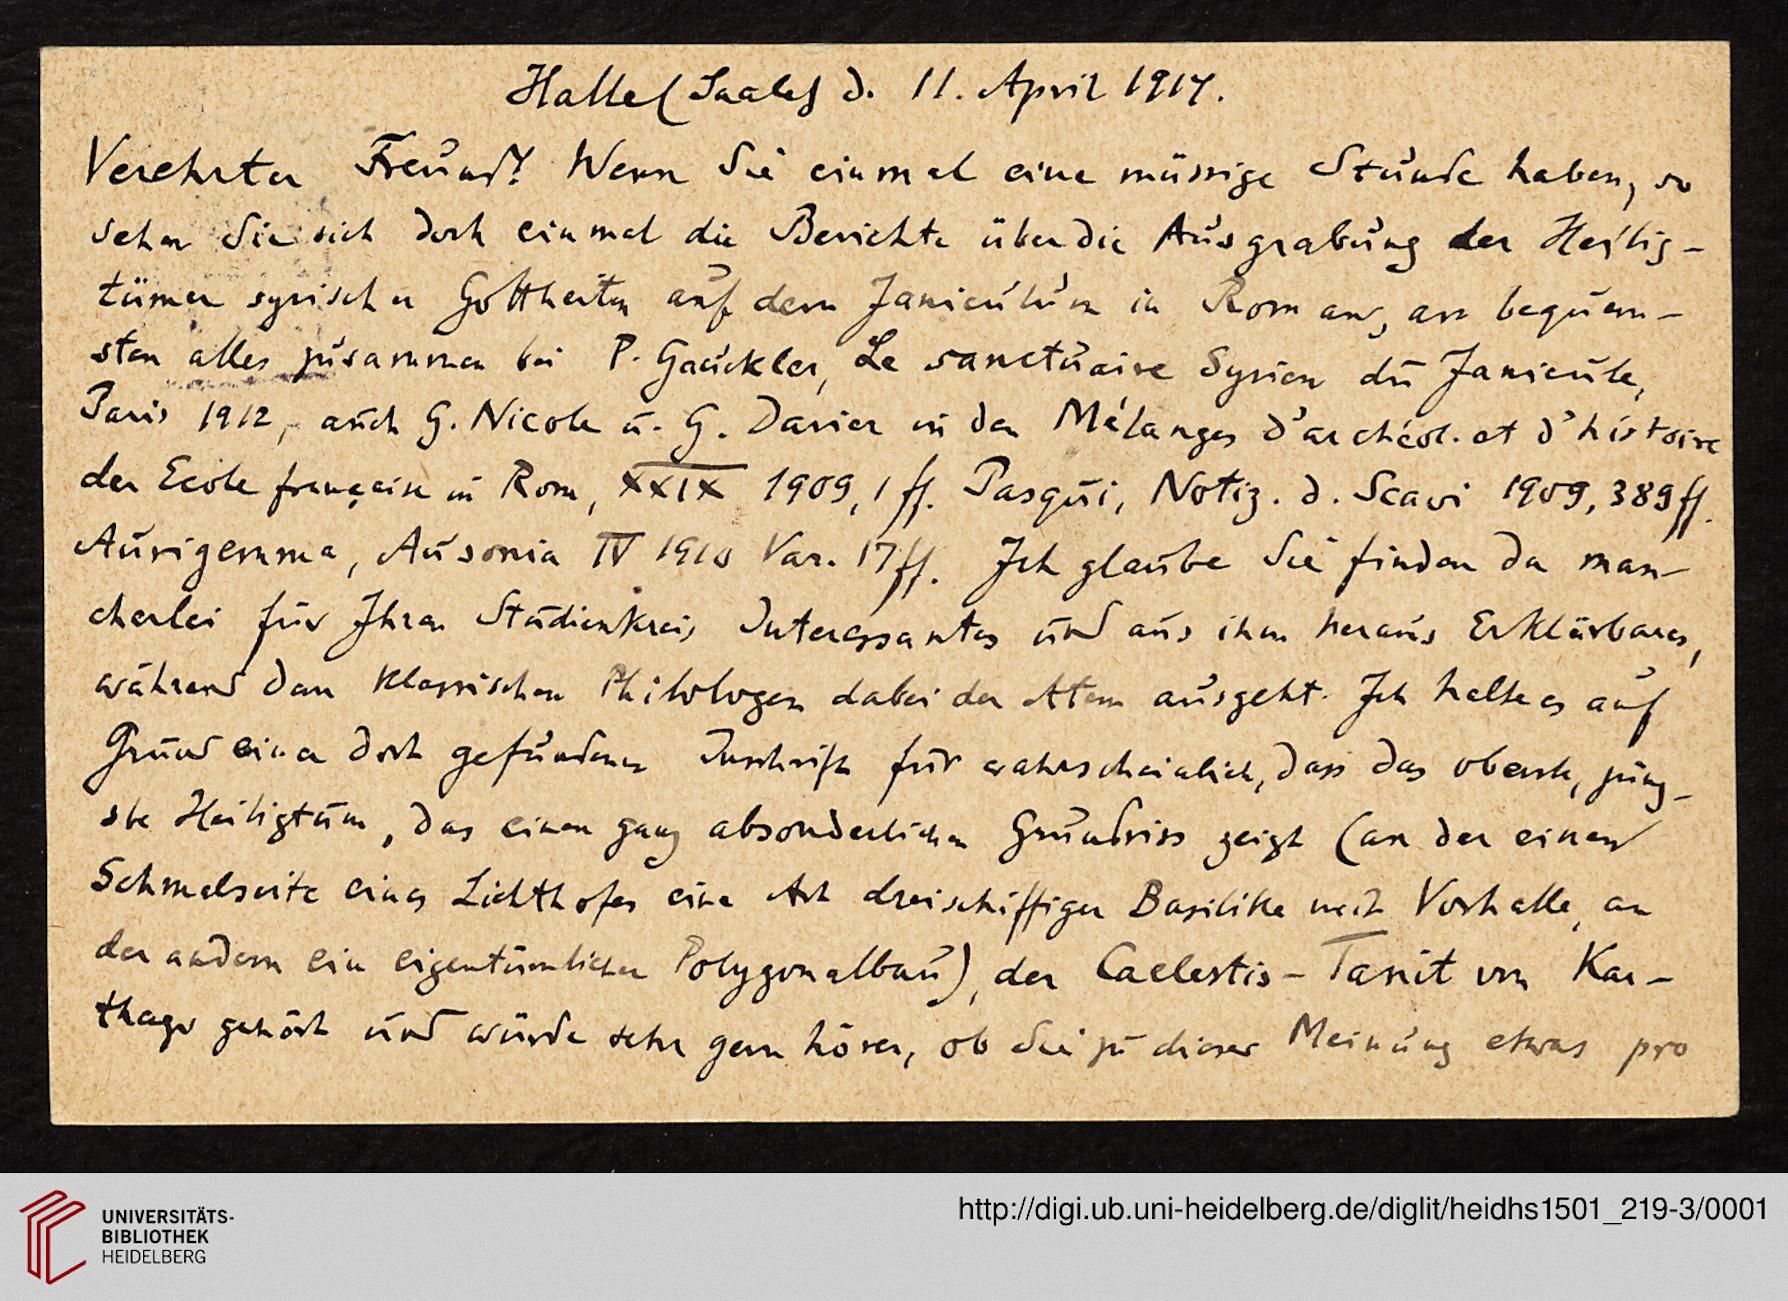 Halle (Saale) d. 11. April 1917.
Verehrter Freund! Wenn Sie einmal eine müssige Stunde haben, so
sehen Sie sich doch einmal die Berichte über die Ausgrabung der Heilig-
tümer syrischer Gottheiten auf dem Janiculum in Rom an, am bequem-
sten alles zusammen bei P. Gauckler, Le sanctuaire Syrien du Janicule,
Paris 1912, auch G. Nicole u. G. Darier in den Mélanges d'archéol. et d'histoire
der Ecole française in Rom, XXIX 1909, 1 ff. Pasqui, Notiz. d. Scavi 1909, 389 ff.
Aurigemma, Ausonia IV 1910 Var. 17 ff. Ich glaube Sie finden da man-
cherlei für Ihren Studienkreis Interessantes und aus ihm heraus Erklärbares,
während dem klassischen Philologen dabei der Atem ausgeht. Ich halte es auf
Grund einer dort gefundenen Inschrift für wahrscheinlich, dass das oberste, jüng-
ste Heiligtum, das einen ganz absonderlichen Grundriss zeigt (an der einen
Schmalseite eines Lichthofes eine Art dreischiffiger Basilika mit Vorhalle, an
der andern ein eigentümlicher Polygonalbau), der Caelestis-Tanit von Kar-
thago gehört und würde sehr gern hören, ob Sie zu dieser Meinung etwas pro
UNIVERSITÄTS-
BIBLIOTHEK
HEIDELBERG
http://digi.ub.uni-heidelberg.de/diglit/heidhs1501_219-3/0001